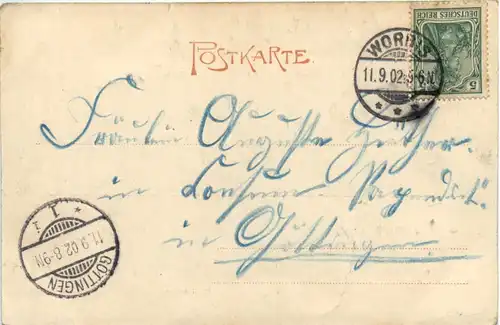 POSTKARTE.
WORMS
11.9.02.5-6N.
DEUTSCHES REICH
5
Fräulein Auguste
in
in Göttingen
GÖTTINGEN
11.9.02 8-9N.